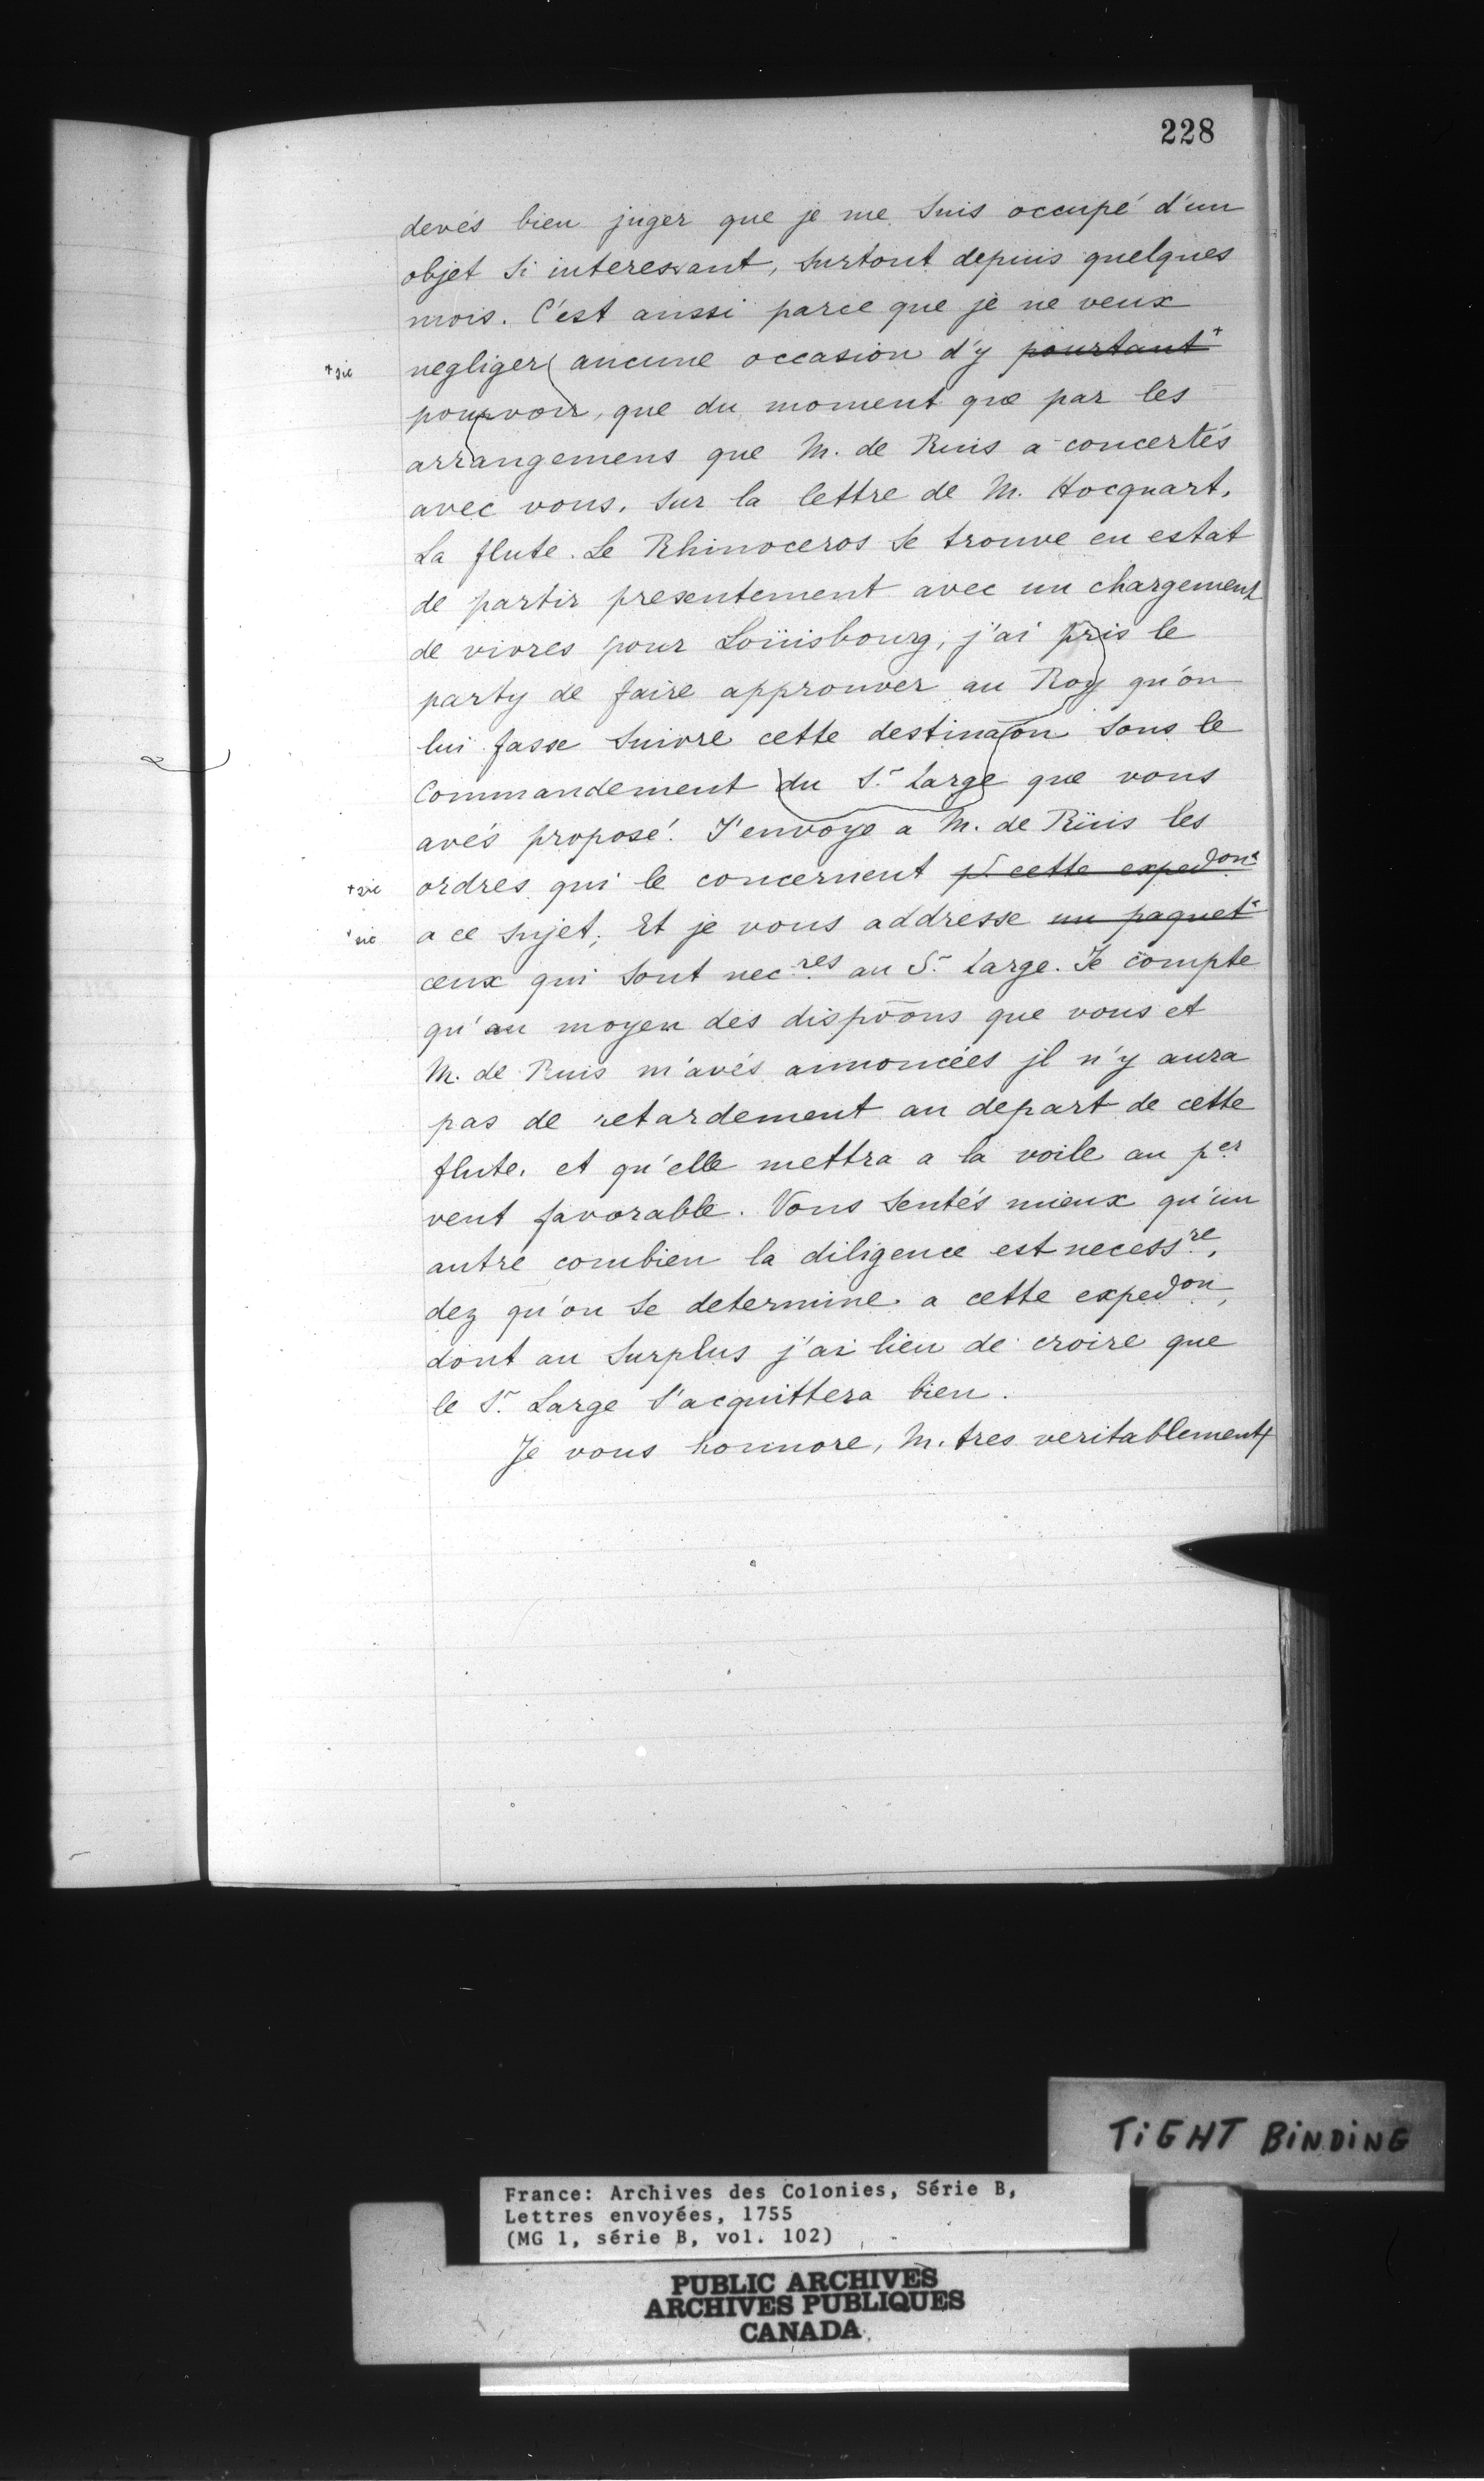 228
devés bien juger que je me suis occupé d'un
objet si interessant, surtout depuis quelques
mois. C'est aussi parce que je ne veux
+sic negliger aucune occasion d'y pourtant+
pourvoir, que du moment que par les
arrangemens que M. de Ruis a concertés
avec vous, sur la lettre de M. Hocquart,
La flute Le Rhinoceros se trouve en estat
de partir presentement avec un chargement
de vivres pour Loüisbourg, j'ai pris le
party de faire approuver au Roy qu'on
lui fasse suivre cette destinaõn sous le
Commandement du Sr. Large que vous
avés proposé. J'envoye a M. de Rüis les
+sic ordres qui le concernent pr. cette expedon+
+sic a ce sujet; Et je vous addresse un paquet+
ceux qui sont necres au Sr. Large. Je compte
qu'au moyen des dispõons que vous et
M. de Ruis m'avés annoncées jl n'y aura
pas de retardement au depart de cette
flute, et qu'elle mettra a la voile au per
vent favorable. Vous sentés mieux qu'un
autre combien la diligence est necessre,
dez qu'on se determine a cette expedon,
dont au surplus j'ai lieu de croire que
le Sr. Large s'acquittera bien.
Je vous honnore, M. tres veritablement
TiGHT BiNDiNG
France: Archives des Colonies, Série B,
Lettres envoyées, 1755
(MG 1, série B, vol. 102)
PUBLIC ARCHIVES
ARCHIVES PUBLIQUES
CANADA